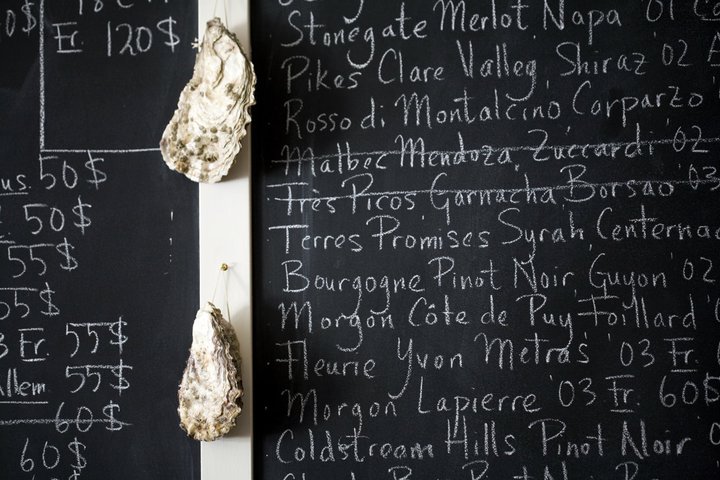 0$
Er 120$
50$
us. 50$
55$
55$
3 Er. 55$
Allem. 55$
60$
60$
Stonegate Merlot, Napa 01 C
Pikes Clare Valley, Shiraz '02 A
Rosso di Montalcino Carparzo
Malbec Mendoza, Zuccardi '02
Très Picos Garnacha Borsao '03
Terres Promises Syrah, Centernac
Bourgogne Pinot Noir, Guyon '02
Morgon Côte de Puy, Foillard
Fleurie Yvon Metras '03 Fr.
Morgon Lapierre, '03 Fr. 60$
Coldstream Hills Pinot Noir